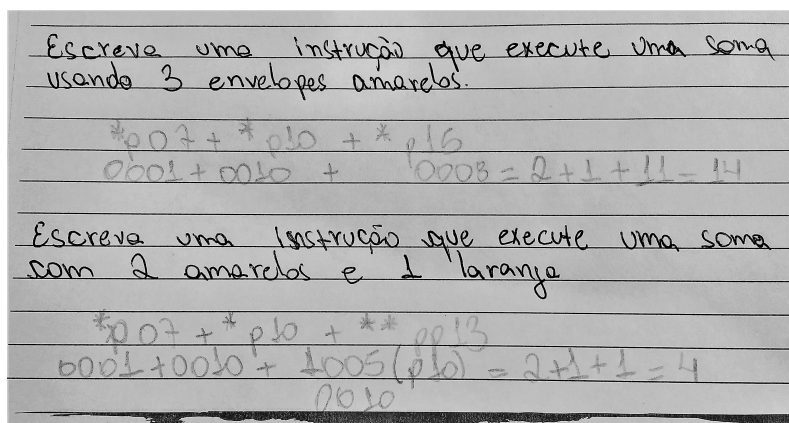 Escreva uma instrução que execute uma soma
usando 3 envelopes amarelos.
*p07 + *p10 + *p16
0001 + 0010 + 0008 = 2 + 1 + 11 = 14
Escreva uma instrução que execute uma soma
com 2 amarelos e 1 laranja
*p07 + *p10 + **pp13
0001 + 0010 + 1005 (p10) = 2+1+1 = 4
0010